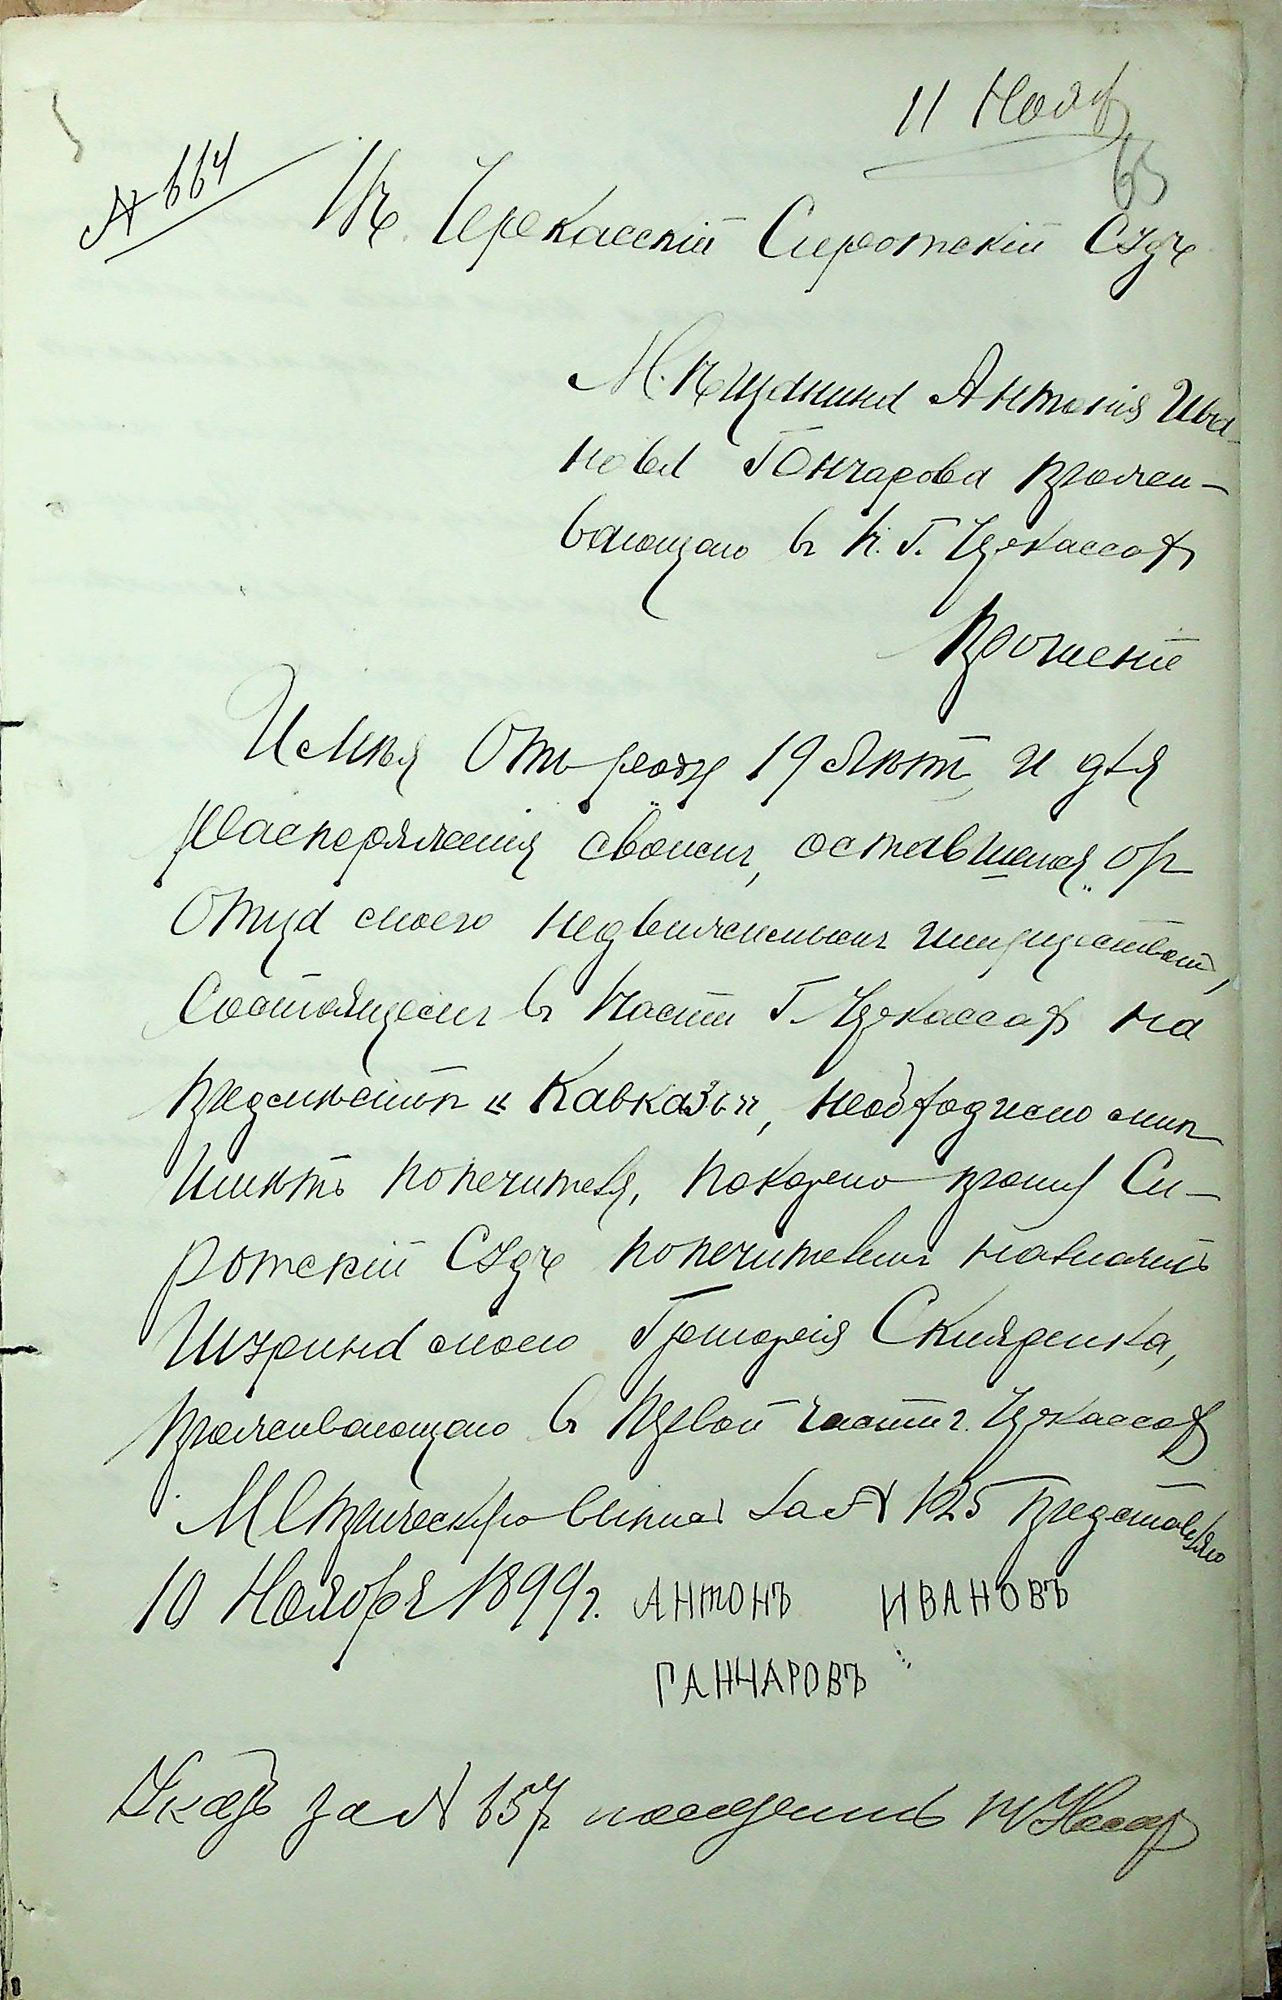 11 Нояб
65
№ 664
Въ Черкасскій Сиротскій Судъ
Мѣщанина Антонія Ива-
нова Гончарова прожи-
вающаго в г. Черкассах
Прошеніе
Имѣя отъ роду 19 лѣтъ, и для
распоряженія своимъ, оставшимся от
отца моего недвижимымъ имуществом,
состоящем в части г. Черкассах на
предмѣстіи «Кавказъ», необходимо мнѣ
имѣть попечителя, покорно прошу Си-
ротскій Судъ попечителемъ назначить
Шурина моего Григорія Скляренка,
проживающаго в первой части г. Черкассах
Метрическую выпись за № 125 представляю
10 Ноября 1899 г. Антонъ Ивановъ
Ганчаровъ
Указъ за № 657 14 Нояб